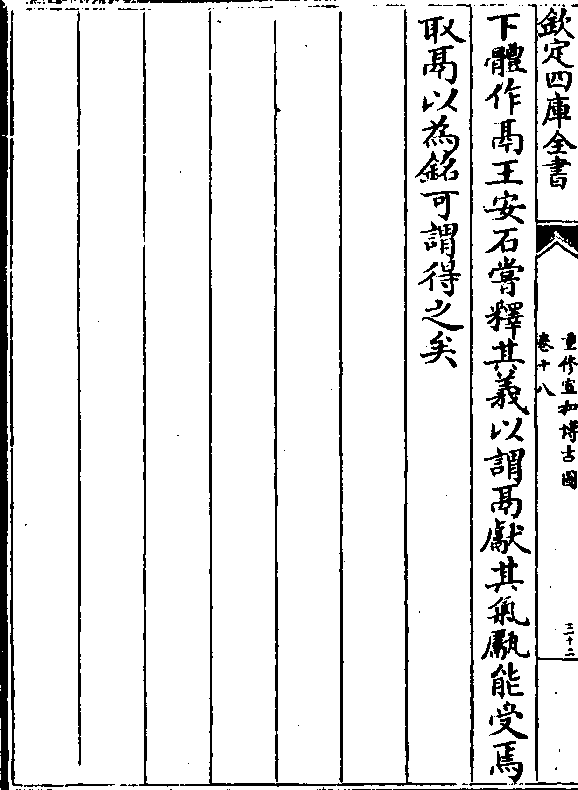 欽定四庫全書
重修宣和博古圖
卷十八
三十二
下體作鬲王安石嘗釋其義以謂鬲獻其氣甗能受焉
取鬲以為銘可謂得之矣